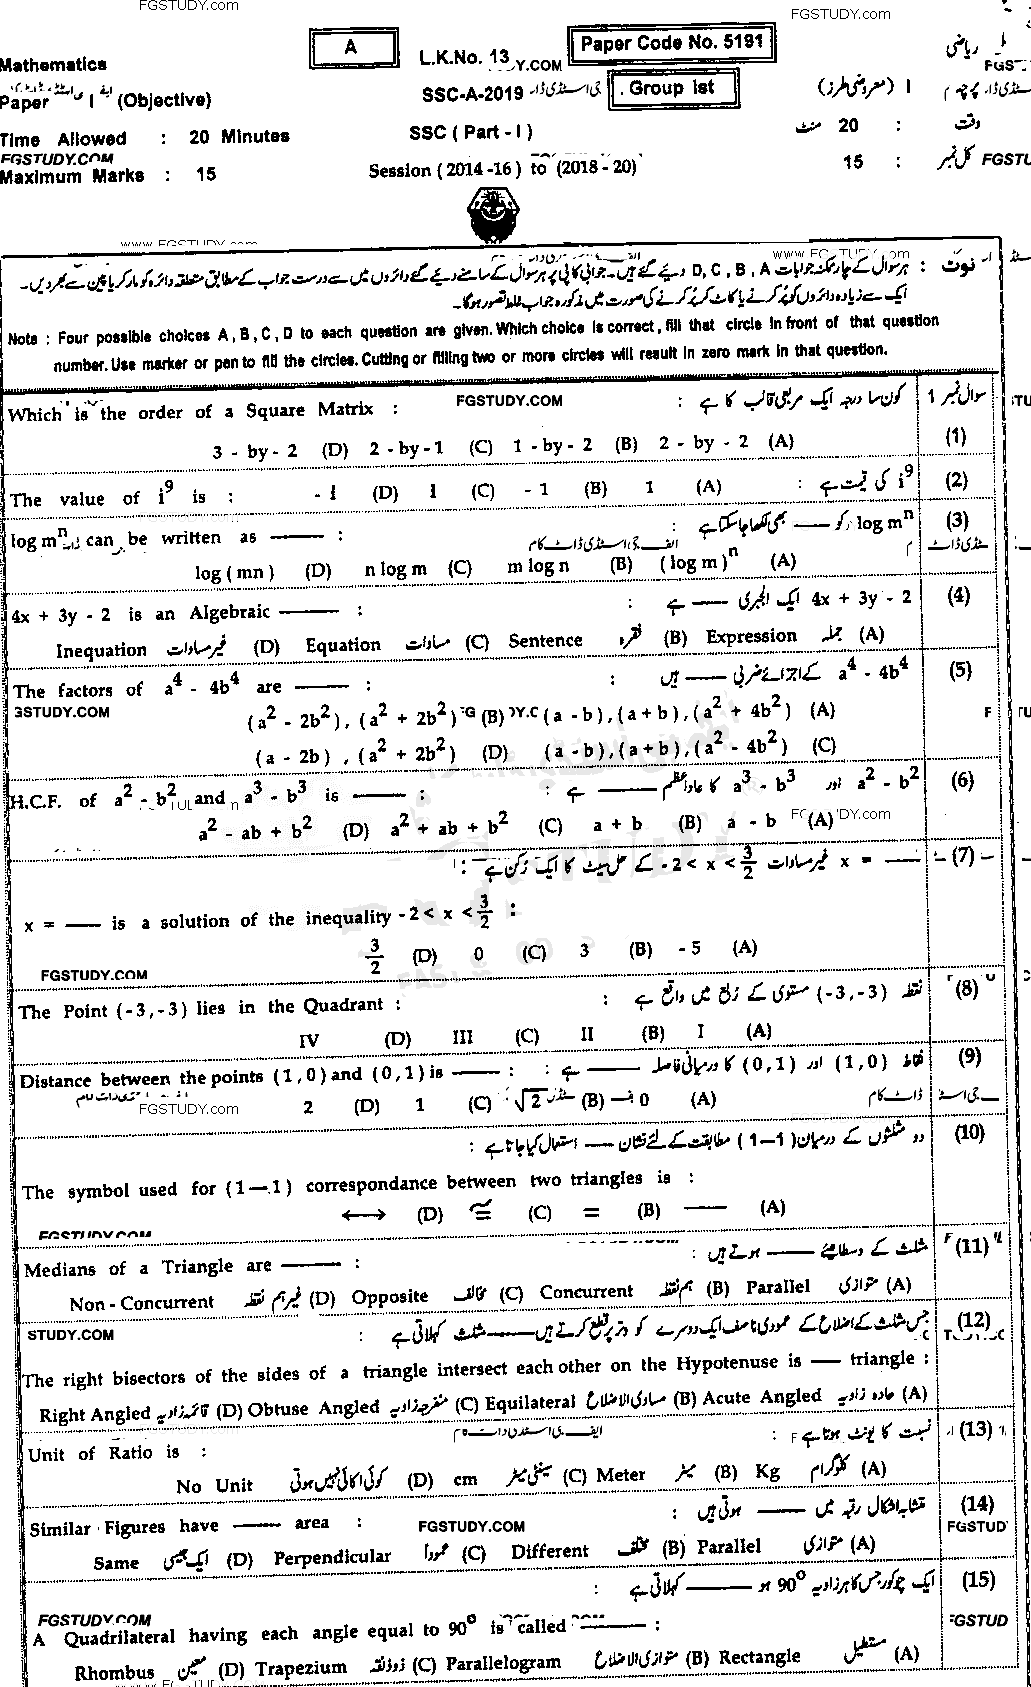 FGSTUDY.com
FGSTUDY.com
Mathematics
A
L.K.No. 13
Y.COM
Paper Code No. 5191
ریاضی
Paper I (Objective)
SSC-A-2019
جی اسٹڈی ڈاٹ
Group Ist
I (معروضی طرز)
Time Allowed : 20 Minutes
SSC ( Part - I )
وقت : 20 منٹ
FGSTUDY.COM
Maximum Marks : 15
Session ( 2014 -16 ) to (2018 - 20)
کل نمبر : 15
www.FGSTUDY.com
نوٹ : ہر سوال کے چار ممکنہ جوابات D , C , B , A دیے گئے ہیں۔ جوابی کاپی پر ہر سوال کے سامنے دیے گئے دائروں میں سے درست جواب کے مطابق متعلقہ دائرہ کو مارکر یا پین سے بھر دیں۔
ایک سے زیادہ دائروں کو پُر کرنے یا کاٹ کر پُر کرنے کی صورت میں مذکورہ جواب غلط تصور ہوگا۔
Note : Four possible choices A , B , C , D to each question are given. Which choice is correct , fill that circle in front of that question
number. Use marker or pen to fill the circles. Cutting or filling two or more circles will result in zero mark in that question.
سوال نمبر 1
(1) کون سا درجہ ایک مربعی قالب کا ہے :
Which is the order of a Square Matrix :
FGSTUDY.COM
3 - by - 2 (D) 2 - by - 1 (C) 1 - by - 2 (B) 2 - by - 2 (A)
(2) i⁹ کی قیمت ہے :
The value of i⁹ is : - i (D) i (C) - 1 (B) 1 (A)
(3) log mⁿ کو —— بھی لکھا جا سکتا ہے :
log mⁿ can be written as —— :
log ( mn ) (D) n log m (C) m log n (B) ( log m )ⁿ (A)
(4) 4x + 3y - 2 ایک الجبری —— ہے :
4x + 3y - 2 is an Algebraic —— :
Inequation غیر مساوات (D) Equation مساوات (C) Sentence فقرہ (B) Expression جملہ (A)
(5) a⁴ - 4b⁴ کے اجزائے ضربی —— ہیں :
The factors of a⁴ - 4b⁴ are —— :
3STUDY.COM
(a² - 2b²) , (a² + 2b²) (B) (a - b) , (a + b) , (a² + 4b²) (A)
(a - 2b) , (a² + 2b²) (D) (a - b) , (a + b) , (a² - 4b²) (C)
(6) a² - b² اور a³ - b³ کا عاد اعظم —— ہے :
H.C.F. of a² - b² and a³ - b³ is —— :
a² - ab + b² (D) a² + ab + b² (C) a + b (B) a - b (A)
(7) x = —— غیر مساوات - 2 < x < 3/2 کے حل سیٹ کا ایک رکن ہے :
x = —— is a solution of the inequality - 2 < x < 3/2 :
3/2 (D) 0 (C) 3 (B) - 5 (A)
FGSTUDY.COM
(8) نقطہ (-3,-3) مستوی کے رُبع میں واقع ہے :
The Point (-3,-3) lies in the Quadrant :
IV (D) III (C) II (B) I (A)
(9) نقاط (1,0) اور (0,1) کا درمیانی فاصلہ —— ہے :
Distance between the points (1,0) and (0,1) is —— :
FGSTUDY.com
2 (D) 1 (C) √2 (B) 0 (A)
(10) دو مثلثوں کے درمیان (1—1) مطابقت کے لئے نشان —— استعمال کیا جاتا ہے :
The symbol used for (1—1) correspondance between two triangles is :
↔ (D) ≅ (C) = (B) — (A)
FGSTUDY.COM
(11) مثلث کے وسطانیے —— ہوتے ہیں :
Medians of a Triangle are —— :
Non - Concurrent غیر ہم نقطہ (D) Opposite مخالف (C) Concurrent ہم نقطہ (B) Parallel متوازی (A)
(12) جس مثلث کے اضلاع کے عمودی ناصف ایک دوسرے کو وتر پر قطع کرتے ہیں —— مثلث کہلاتی ہے :
STUDY.COM
The right bisectors of the sides of a triangle intersect each other on the Hypotenuse is —— triangle :
Right Angled قائمہ زاویہ (D) Obtuse Angled منفرجہ زاویہ (C) Equilateral مساوی الاضلاع (B) Acute Angled حادہ زاویہ (A)
(13) نسبت کا یونٹ ہوتا ہے :
Unit of Ratio is :
No Unit کوئی اکائی نہیں ہوتی (D) cm سینٹی میٹر (C) Meter میٹر (B) Kg کلوگرام (A)
(14) متشابہ اشکال رقبہ میں —— ہوتی ہیں :
Similar Figures have —— area :
FGSTUDY.COM
FGSTUD
Same ایک جیسی (D) Perpendicular عموداً (C) Different مختلف (B) Parallel متوازی (A)
(15) ایک چوکور جس کا ہر زاویہ 90° ہو —— کہلاتی ہے :
FGSTUDY.COM
A Quadrilateral having each angle equal to 90° is called —— :
Rhombus معین (D) Trapezium ذوذنقہ (C) Parallelogram متوازی الاضلاع (B) Rectangle مستطیل (A)